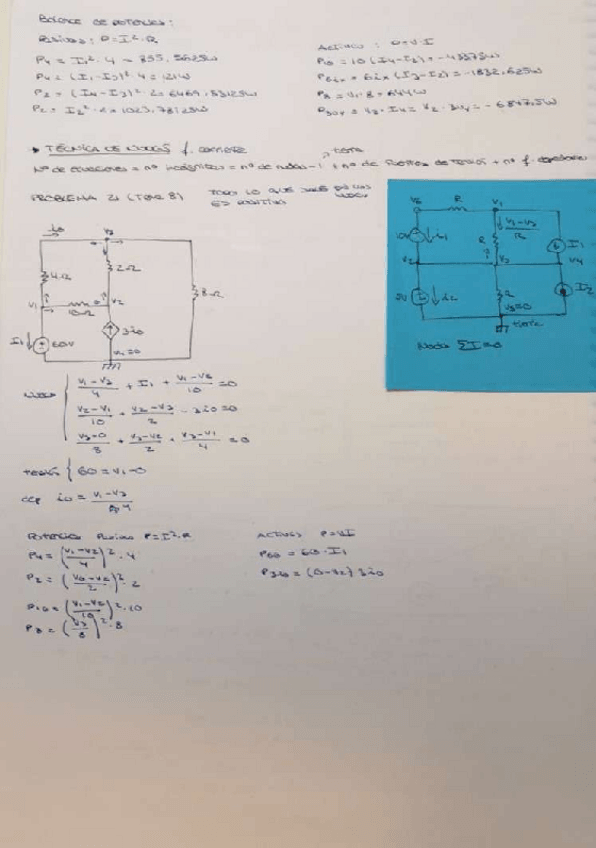 Balance de potencias:
Pasivos: P=I²·R
P4 = I1²·4 = 855,5625W
P4 = (I1-I3)²·4=121W
P2 = (I4-I3)²·2=6469,53125W
P2 = I2²·2=1023,78125W
Activos: P=V·I
P10 = 10(I4-I2)=-4337,5W
P6ix = 6ix(I3-I2)=-1832,625W
→ TÉCNICA DE NUDOS f. corriente
→ tierra
Nº de ecuaciones = nº incógnitas = nº de nudos-1 + nº de fuentes de tensión + nº f. dependientes
PROBLEMA 21 (TEMA 8)
TODO LO QUE SALE DE LOS NUDOS
ES POSITIVO
io
V3
4Ω
2Ω
8Ω
V1
V2
10Ω
I1
60V
3io
V4=0
V2
R
V1
V1-V3
R
10V
i1
R
I1
V2
V3
V4
i2
R
I2
V5=0
tierra
Nudos ΣI=0
Nudos
V1-V3/4 + I1 + V1-V2/10 =0
V2-V1/10 + V2-V3/2 - 3io=0
V3-0/8 + V3-V2/2 + V3-V1/4 =0
tensión { 60=V1-0
dep io = V1-V3/4
Potencia Pasivos P=I²·R
P4 = (V1-V3/4)²·4
P2 = (V3-V2/2)²·2
P10 = (V1-V2/10)²·10
P8 = (V3/8)²·8
ACTIVOS P=VI
P60 = 60·I1
P3io = (0-V2)3io